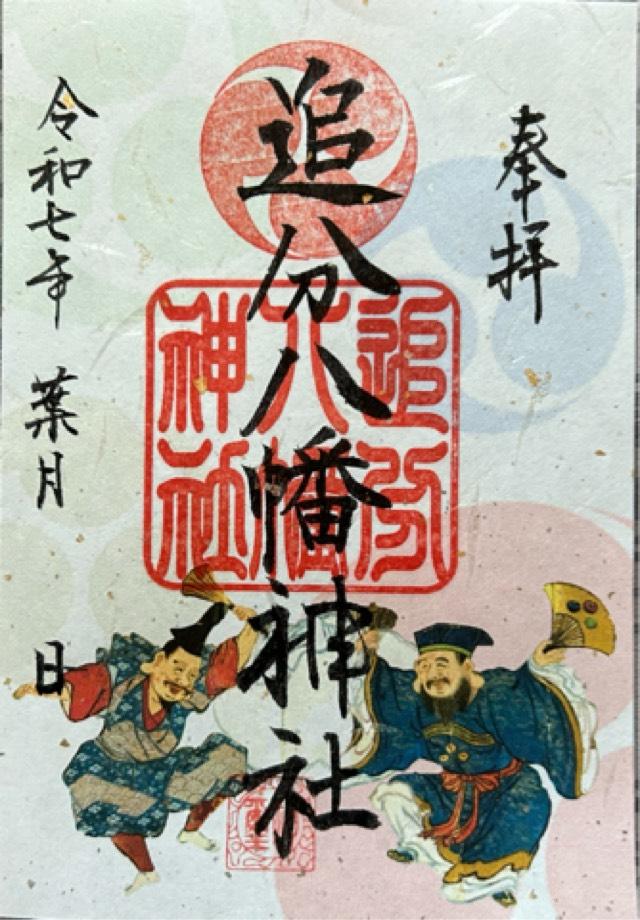 奉拝
追分八幡神社
追分八幡神社
令和七年 葉月 日